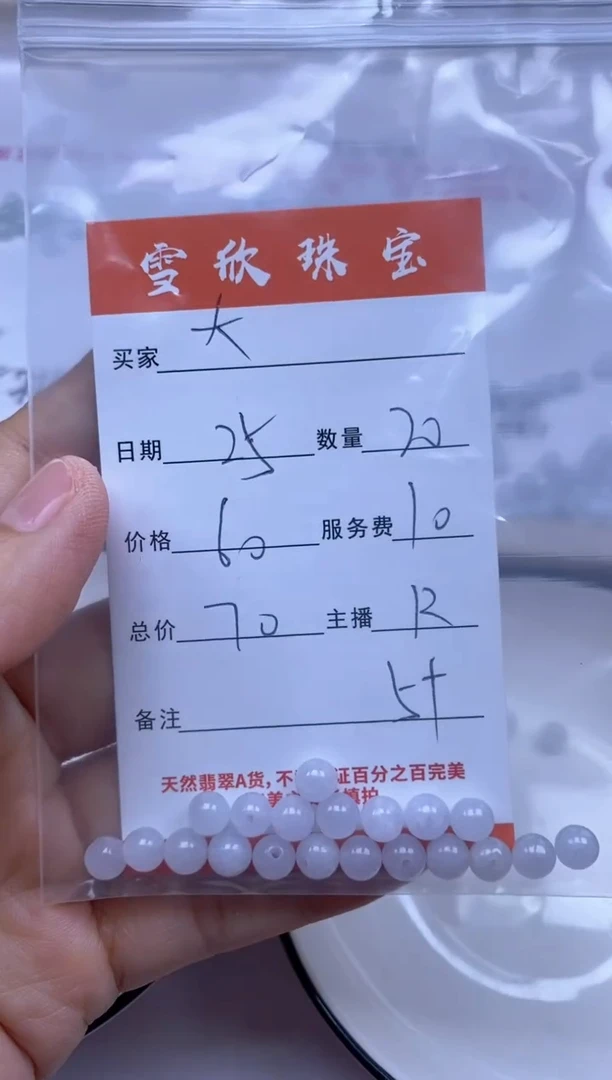 雪欣珠宝
买家 大
日期 25 数量 20
价格 60 服务费 10
总价 70 主播 R
备注
天然翡翠A货,不 证百分之百完美
美 慎护